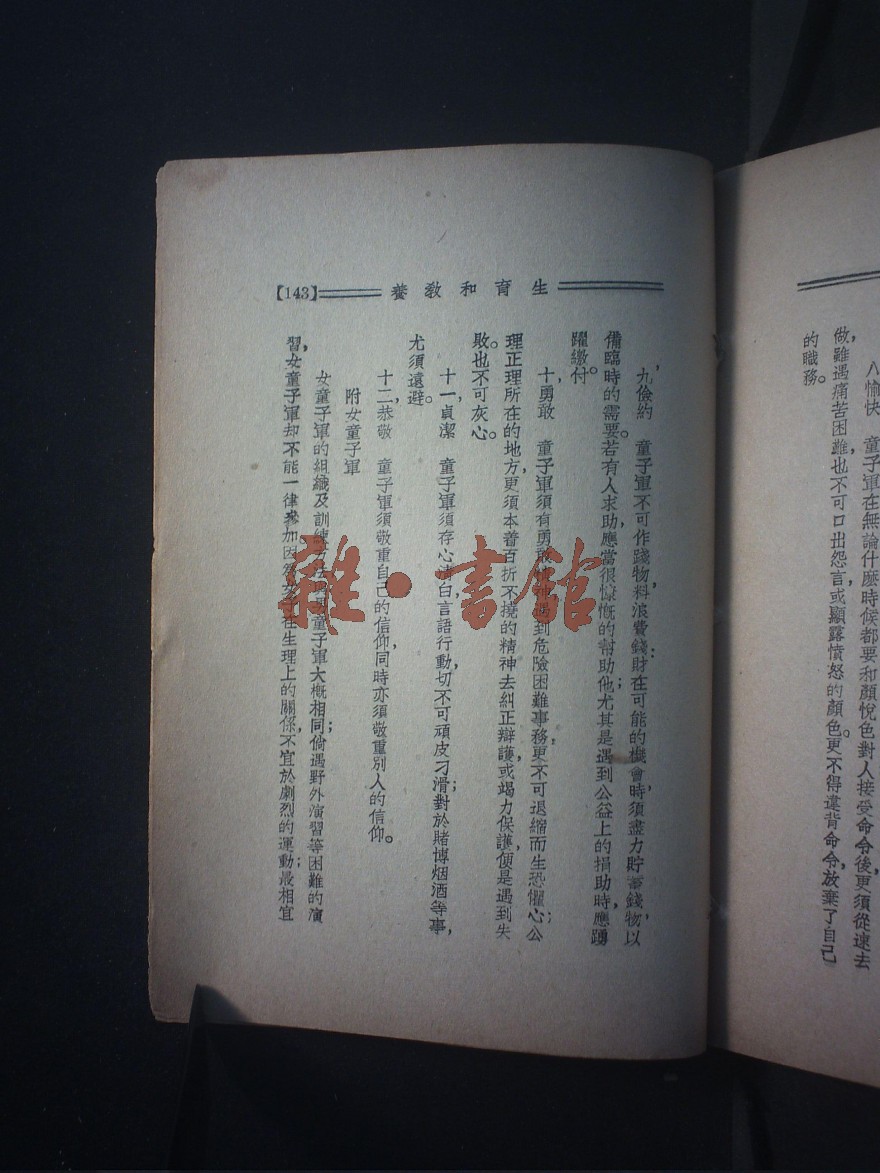 八愉快　童子軍在無論什麽時候都要和顏悅色對人接受命令後更須從速去
做，雖遇痛苦困難，也不可口出怨言，或顯露憤怒的顏色。更不得違背命令，放棄了自己
的職務。
生育和教養
【143】
九，儉約　童子軍不可作踐物料，浪費錢財：在可能的機會時，須盡力貯蓄錢物，以
備臨時的需要。若有人求助，應當很慷慨的幫助他；尤其是遇到公益上的捐助時，應踴
躍繳付。
十，勇敢　童子軍須有勇敢　遇到危險困難事務，更不可退縮而生恐懼心，公
理正理所在的地方，更須本着百折不撓的精神，去糾正辯護，或竭力保護，便是遇到失
敗，也不可灰心。
十一，貞潔　童子軍須存心清白，言語行動，切不可頑皮刁滑；對於賭博烟酒等事，
尤須遠避。
十二，恭敬　童子軍須敬重自己的信仰，同時亦須敬重別人的信仰。
附女童子軍
女童子軍的組織及訓練方法與男童子軍大概相同；倘遇野外演習等困難的演
習，女童子軍却不能一律參加，因為女子在生理上的關係，不宜於劇烈的運動；最相宜
雜·書館